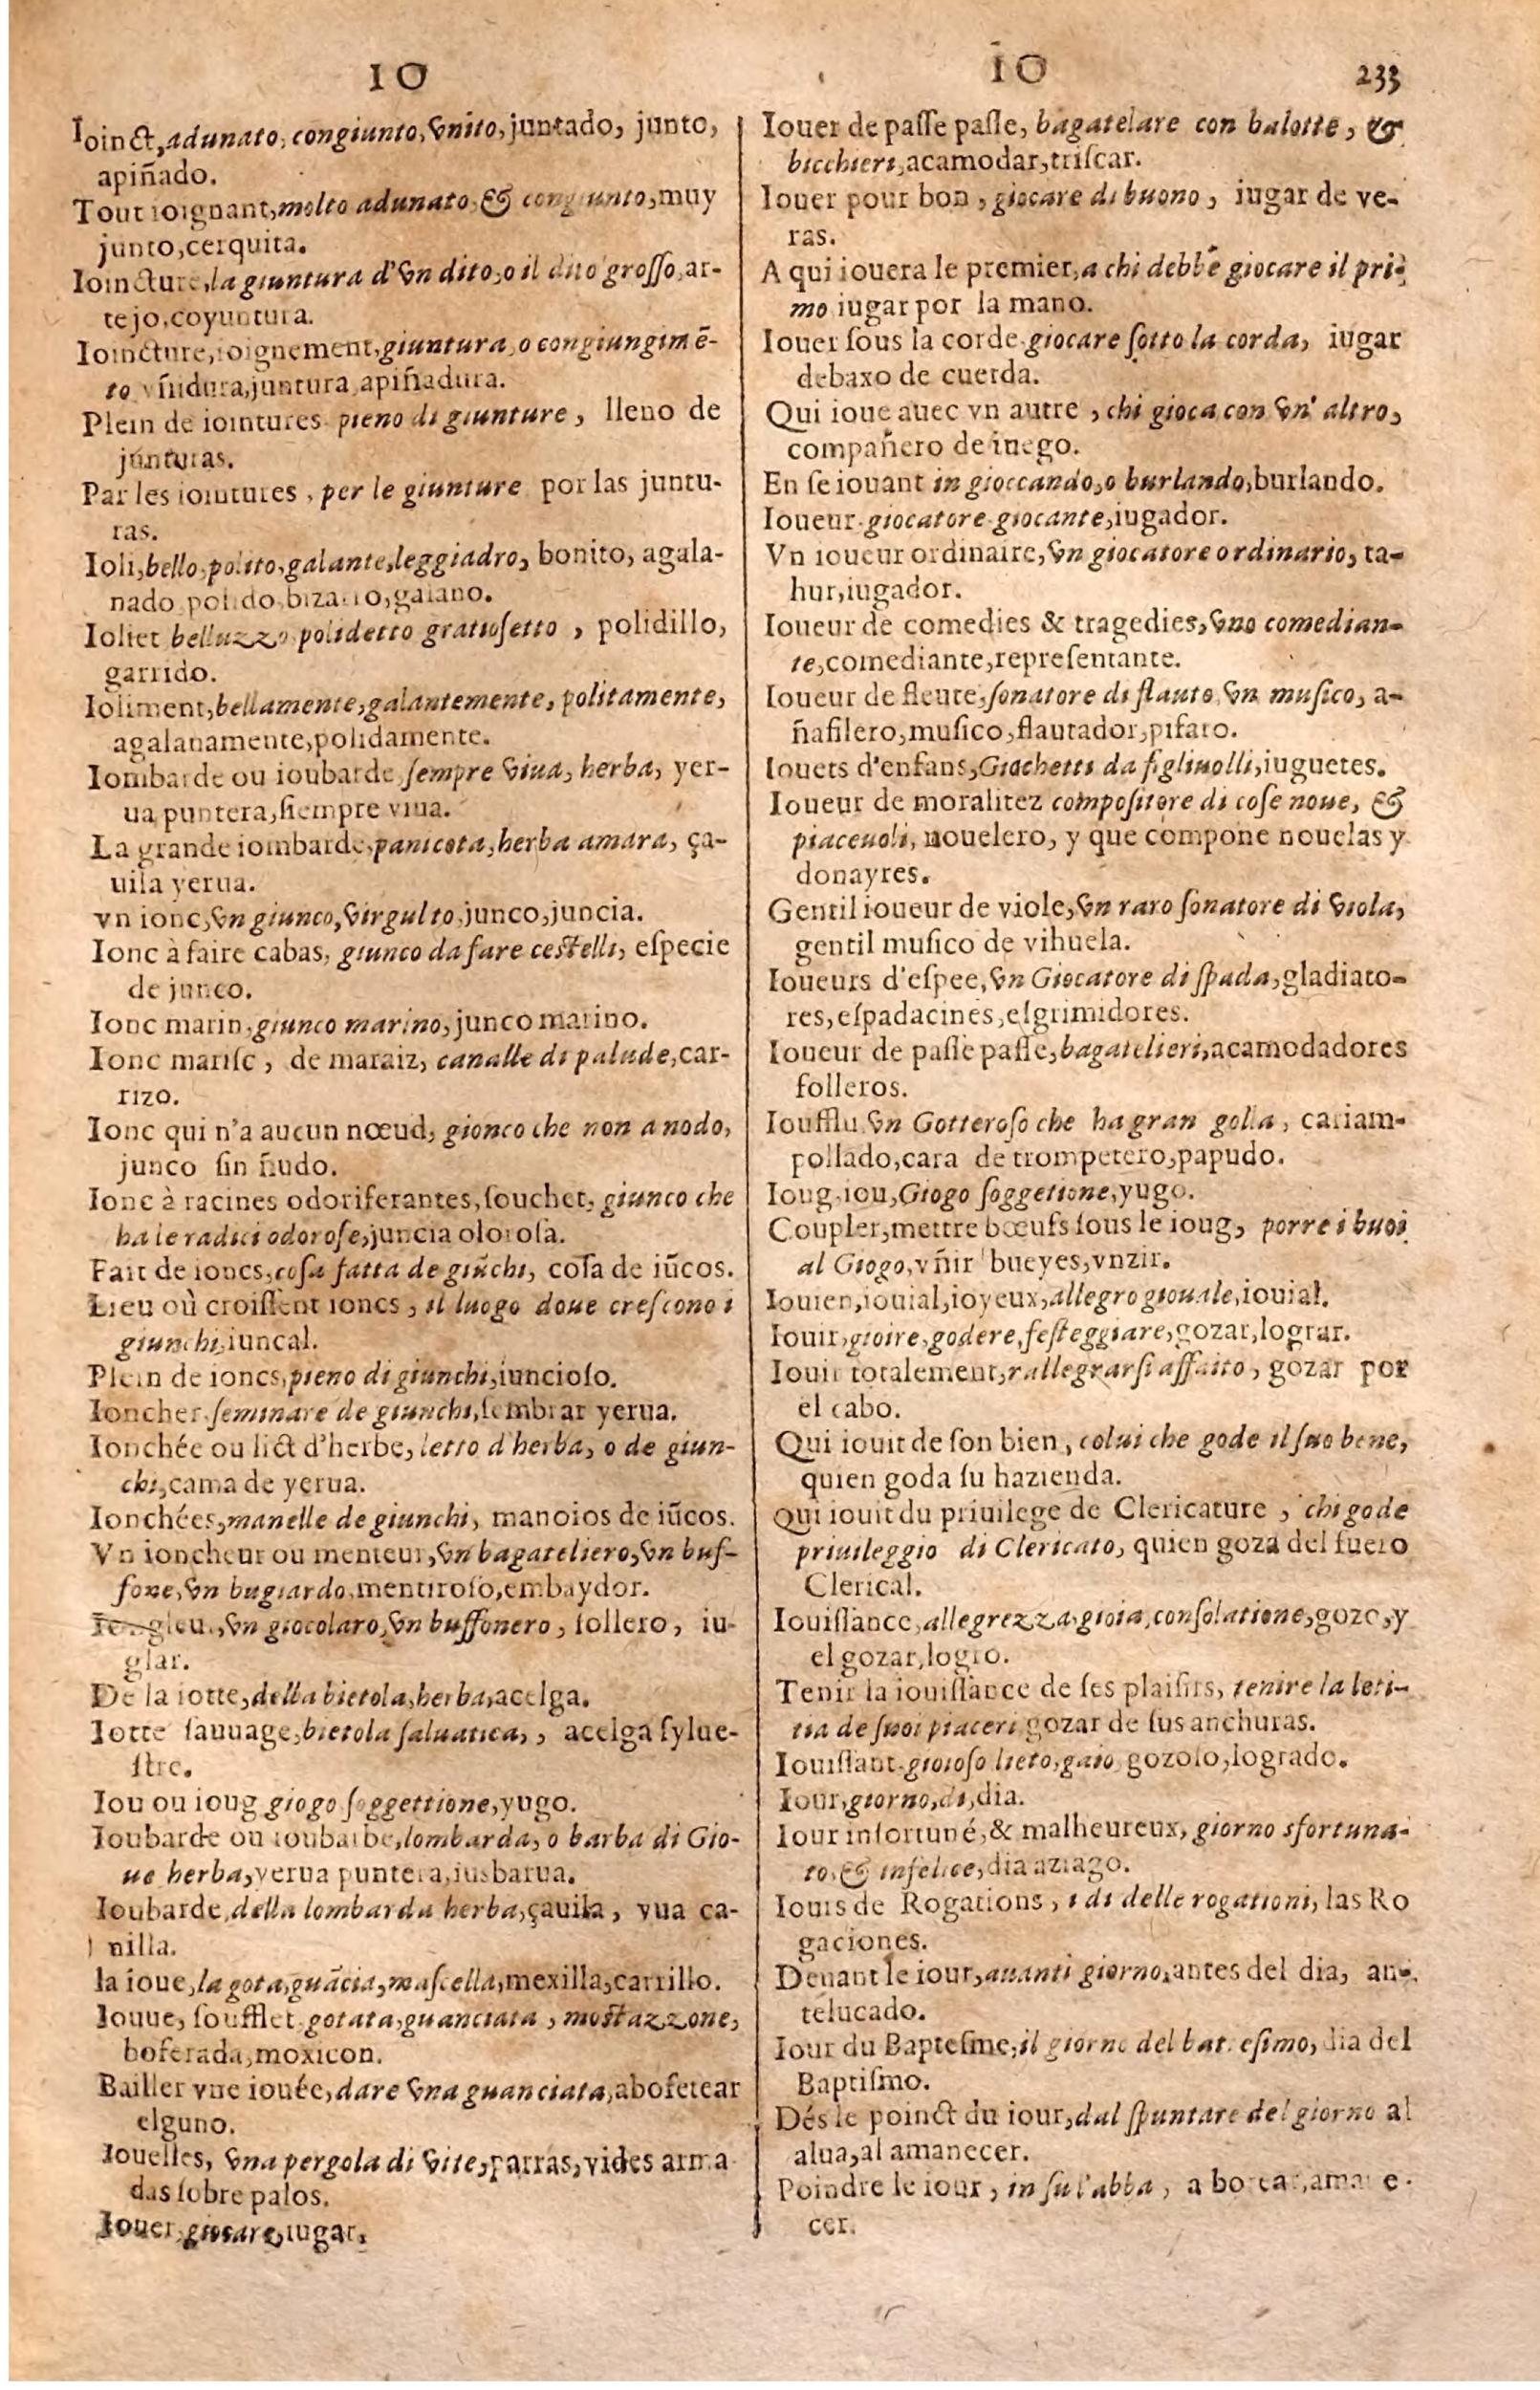 IO
Ioinct, adunato, congiunto, vnito, juntado, junto,
apiñado.
Tout ioignant, molto adunato, & congiunto, muy
junto, cerquita.
Ioincture, la giuntura d'vn dito, o il dito grosso, ar-
tejo, coyuntura.
Ioincture, ioignement, giuntura, o congiungimē-
to vñidura, juntura, apiñadura.
Plein de iointures pieno di giunture, lleno de
junturas.
Par les iointures, per le giunture por las juntu-
ras.
Ioli, bello, polito, galante, leggiadro, bonito, agala-
nado polido, bizarro, galano.
Ioliet belluzzo polidetto gratiosetto, polidillo,
garrido.
Ioliment, bellamente, galantemente, politamente,
agalanamente, polidamente.
Iombarde ou ioubarde, sempre viua, herba, yer-
ua puntera, siempre viua.
La grande iombarde, panicota, herba amara, ça-
uila yerua.
vn ionc, vn giunco, virgulto, junco, juncia.
Ionc à faire cabas, giunco da fare cestelli, especie
de junco.
Ionc marin, giunco marino, junco marino.
Ionc marisc, de maraiz, canalle di palude, car-
rizo.
Ionc qui n'a aucun nœud, gionco che non a nodo,
junco sin ñudo.
Ionc à racines odoriferantes, souchet, giunco che
ha le radici odorose, juncia olorosa.
Fait de ioncs, cosa fatta de giūchi, cosa de iūcos.
Lieu où croissent ioncs, il luogo doue crescono i
giunchi, iuncal.
Plein de ioncs, pieno di giunchi, iuncioso.
Ioncher seminare de giunchi, sembrar yerua.
Ionchée ou lict d'herbe, letto d'herba, o de giun-
chi, cama de yerua.
Ionchées, manelle de giunchi, manoios de iūcos.
Vn ioncheur ou menteur, vn bagateliero, vn buf-
fone, vn bugiardo, mentiroso, embaydor.
Iongleur, vn giocolaro, vn buffonero, follero, iu-
glar.
De la iotte, della bietola, herba, acelga.
Iotte sauuage, bietola saluatica,, acelga sylue-
stre.
Iou ou ioug giogo soggettione, yugo.
Ioubarde ou ioubarbe, lombarda, o barba di Gio-
ue herba, yerua puntera, iusbarua.
Ioubarde, della lombarda herba, çauila, vua ca-
nilla.
la ioue, la gota, guācia, mascella, mexilla, carrillo.
Ioue, soufflet gotata, guanciata, mostazzone,
bofetada, moxicon.
Bailler vne iouée, dare vna guanciata, abofetear
elguno.
Iouelles, vna pergola di vite, parras, vides arma
das sobre palos.
Iouer, giocare, iugar,
IO
233
Iouer de passe passe, bagatelare con balotte, &
bicchieri, acamodar, triscar.
Iouer pour bon, giocare di buono, iugar de ve-
ras.
A qui iouera le premier, a chi debbe giocare il pri-
mo iugar por la mano.
Iouer sous la corde giocare sotto la corda, iugar
debaxo de cuerda.
Qui ioue auec vn autre, chi gioca con vn' altro,
compañero de iuego.
En se iouant in gioccando, o burlando, burlando.
Ioueur giocatore giocante, iugador.
Vn ioueur ordinaire, vn giocatore ordinario, ta-
hur, iugador.
Ioueur de comedies & tragedies, vno comedian-
te, comediante, representante.
Ioueur de fleute, sonatore di flauto, vn musico, a-
ñafilero, musico, flautador, pifaro.
Iouets d'enfans, Giochetti da figliuolli, iuguetes.
Ioueur de moralitez compositore di cose noue, &
piaceuoli, nouelero, y que compone nouelas y
donayres.
Gentil ioueur de viole, vn raro sonatore di viola,
gentil musico de vihuela.
Ioueurs d'espee, vn Giocatore di spada, gladiato-
res, espadacines, esgrimidores.
Ioueur de passe passe, bagatelieri, acamodadores
folleros.
Ioufflu vn Gotteroso che ha gran golla, cariam-
pollado, cara de trompetero, papudo.
Ioug, iou, Giogo soggetione, yugo.
Coupler, mettre bœufs sous le ioug, porre i buoi
al Giogo, vñir bueyes, vnzir.
Iouien, iouial, ioyeux, allegro giouale, iouial.
Iouir, gioire, godere, festeggiare, gozar, lograr.
Iouir totalement, rallegrarsi affaito, gozar por
el cabo.
Qui iouit de son bien, colui che gode il suo bene,
quien goda su hazienda.
Qui iouit du priuilege de Clericature, chi gode
priuileggio di Clericato, quien goza del fuero
Clerical.
Iouissance, allegrezza, gioia, consolatione, gozo, y
el gozar, logro.
Tenir la iouissance de ses plaisirs, tenire la leti-
tia de suoi piaceri gozar de sus anchuras.
Iouissant gioioso lieto, gaio gozoso, logrado.
Iour, giorno, di, dia.
Iour infortuné, & malheureux, giorno sfortuna-
to, & infelice, dia aziago.
Iours de Rogations, i di delle rogationi, las Ro
gaciones.
Deuant le iour, auanti giorno, antes del dia, an-
telucado.
Iour du Baptesme, il giorno del batesimo, dia del
Baptismo.
Dés le poinct du iour, dal spuntare del giorno al
alua, al amanecer.
Poindre le iour, in su l'abba, a
cer.